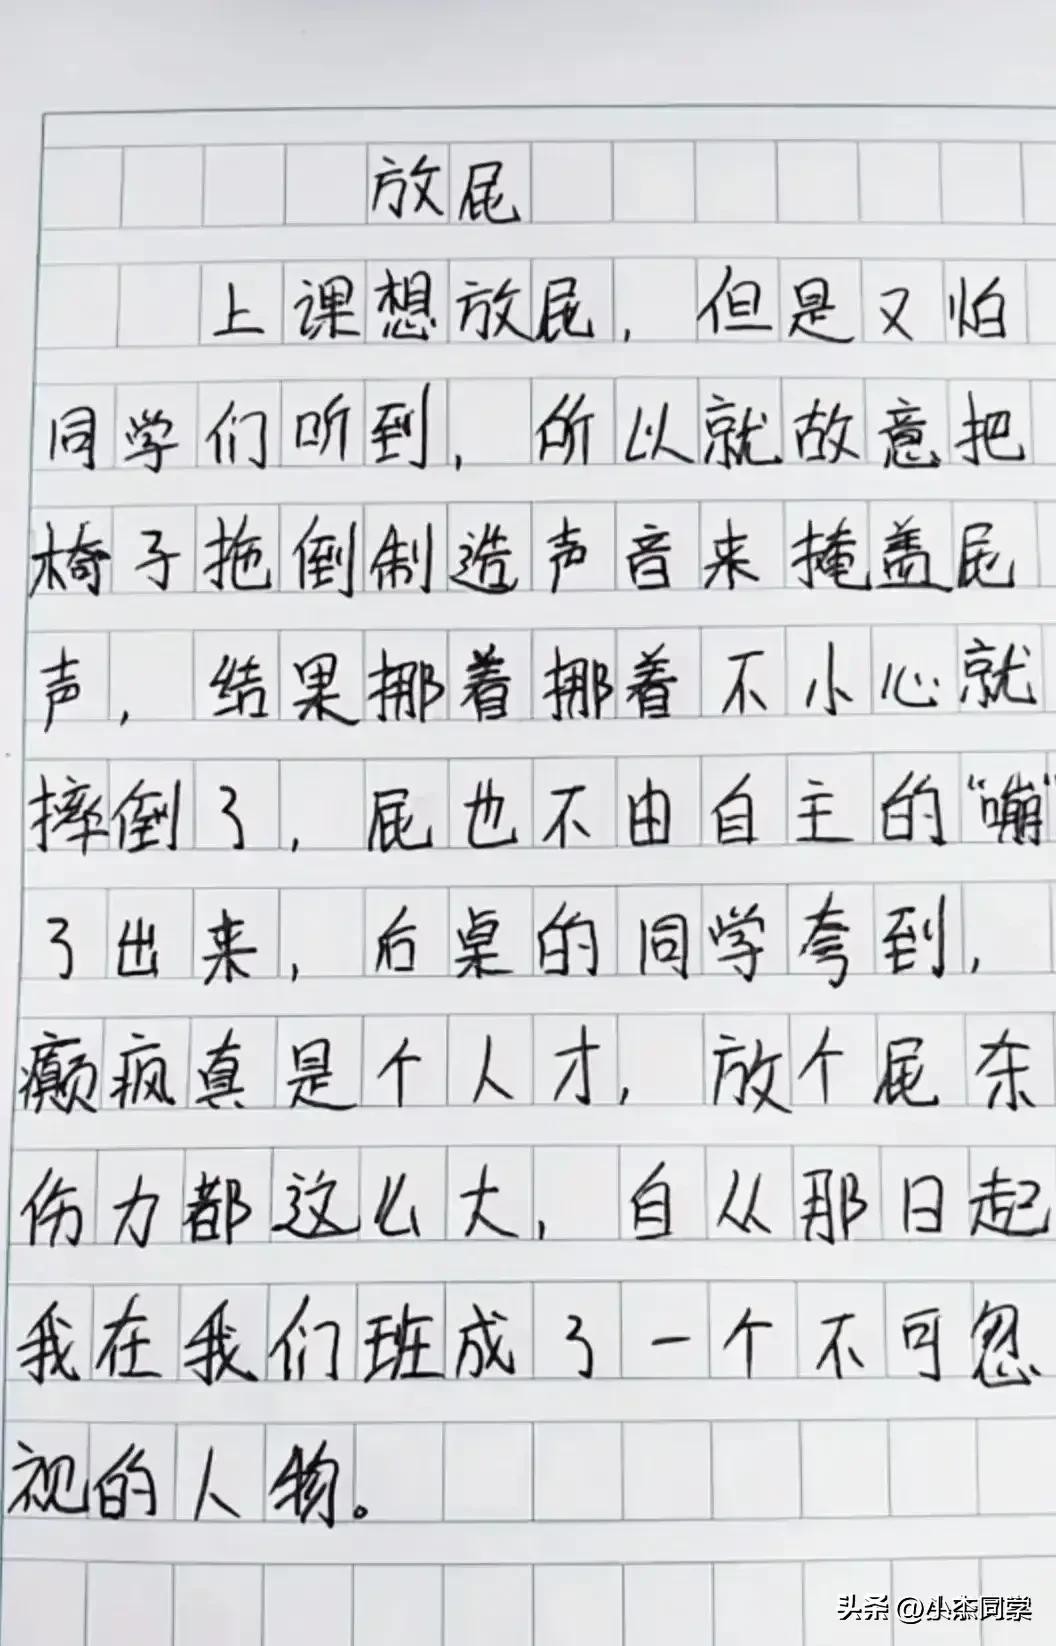 放屁
上课想放屁，但是又怕
同学们听到，所以就故意把
椅子拖倒制造声音来掩盖屁
声，结果挪着挪着不小心就
摔倒了，屁也不由自主的“嘣”
了出来，后桌的同学夸到，
癫疯真是个人才，放个屁杀
伤力都这么大，自从那日起
我在我们班成了一个不可忽
视的人物。
头条 @小杰同学